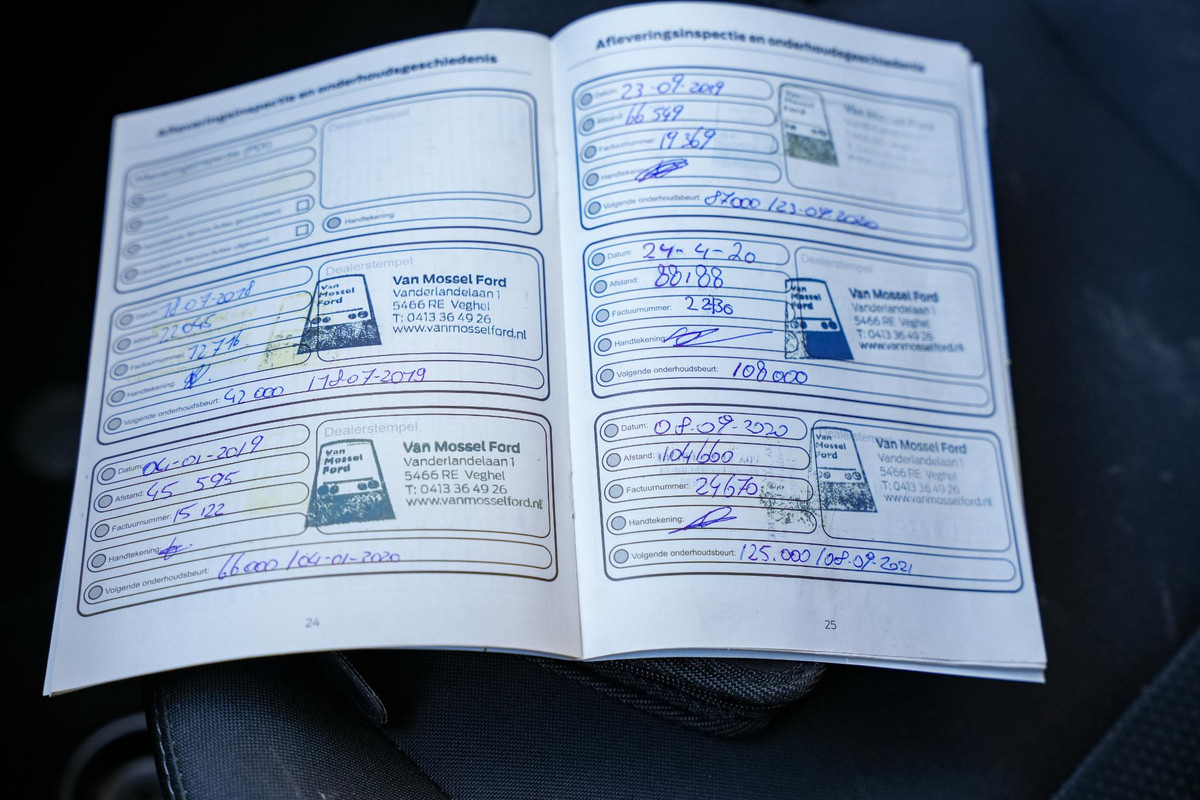 Afleveringsinspectie en onderhoudsgeschiedenis
Afleveringsinspectie (PDI)
Dealerstempel
Handtekening:
Datum: 18-07-2018
Afstand: 22045
Factuurnummer: 12716
Handtekening:
Volgende onderhoudsbeurt: 42 000 / 18-07-2019
Dealerstempel
Van Mossel Ford
Van Mossel Ford
Vanderlandelaan 1
5466 RE Veghel
T: 0413 36 49 26
www.vanmosselford.nl
Datum: 04-01-2019
Afstand: 45 595
Factuurnummer: 15 122
Handtekening:
Volgende onderhoudsbeurt: 66000 / 04-01-2020
Dealerstempel
Van Mossel Ford
Van Mossel Ford
Vanderlandelaan 1
5466 RE Veghel
T: 0413 36 49 26
www.vanmosselford.nl
24
Afleveringsinspectie en onderhoudsgeschiedenis
Datum: 23-09-2019
Afstand: 66 549
Factuurnummer: 19369
Handtekening:
Volgende onderhoudsbeurt: 87000 / 23-09-2020
Van Mossel Ford
Van Mossel Ford
Datum: 24-4-20
Afstand: 88188
Factuurnummer:
Handtekening:
Volgende onderhoudsbeurt: 108000
Dealerstempel
Van Mossel Ford
Van Mossel Ford
Vanderlandelaan 1
5466 RE Veghel
T: 0413 36 49 26
www.vanmosselford.nl
Datum: 08-09-2020
Afstand: 104660
Factuurnummer: 24670
Handtekening:
Volgende onderhoudsbeurt: 125.000 / 08-09-2021
Dealerstempel
Van Mossel Ford
Van Mossel Ford
Vanderlandelaan 1
5466 RE Veghel
T: 0413 36 49 26
www.vanmosselford.nl
25